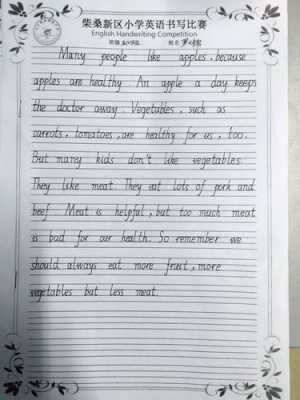 柴桑新区小学英语书写比赛
English Handwriting Competition
班级 姓名
Many people like apples, because
apples are healthy An apple a day keeps
the doctor away. Vegetables, such as
carrots, tomatoes, are healthy for us, too.
But many kids don't like vegetables.
They like meat. They eat lots of pork and
beef. Meat is helpful, but too much meat
is bad for our health. So remember we
should always eat more fruit, more
vegetables but less meat.